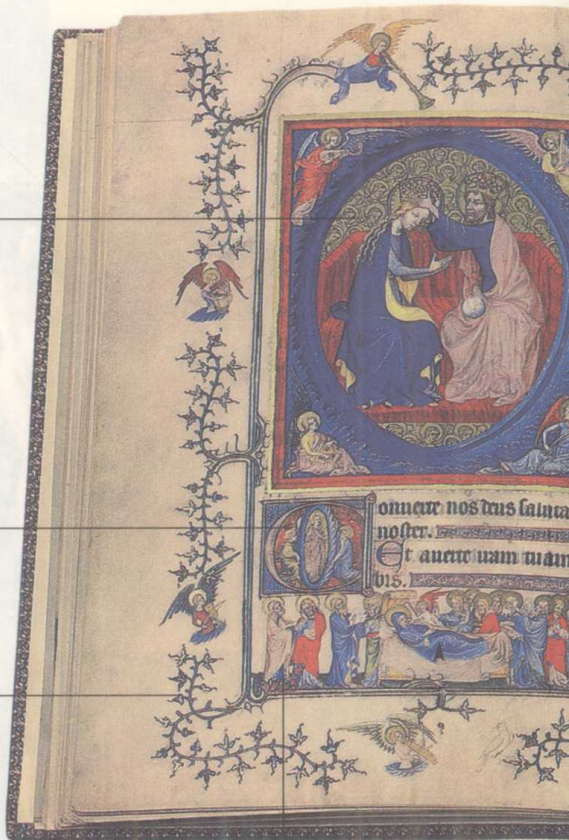 Conuerte nos deus saluta
noster.
Et auerte iram tuam
bis.